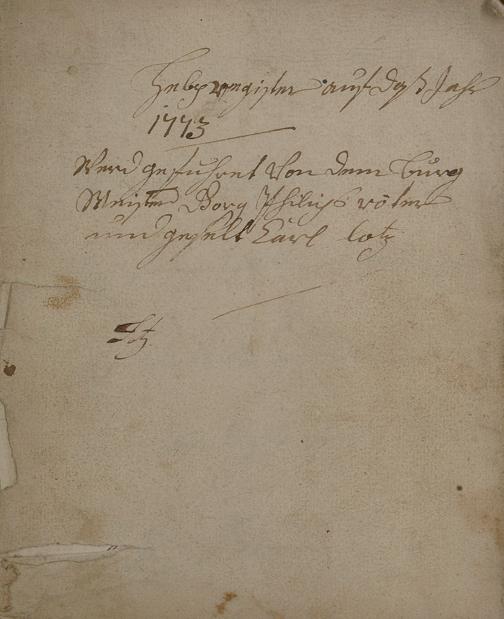 Hebregister auf daß Jahr
1773
Werd geführet Von dem burg
Meister Philips röter
und geselt Carl lotz